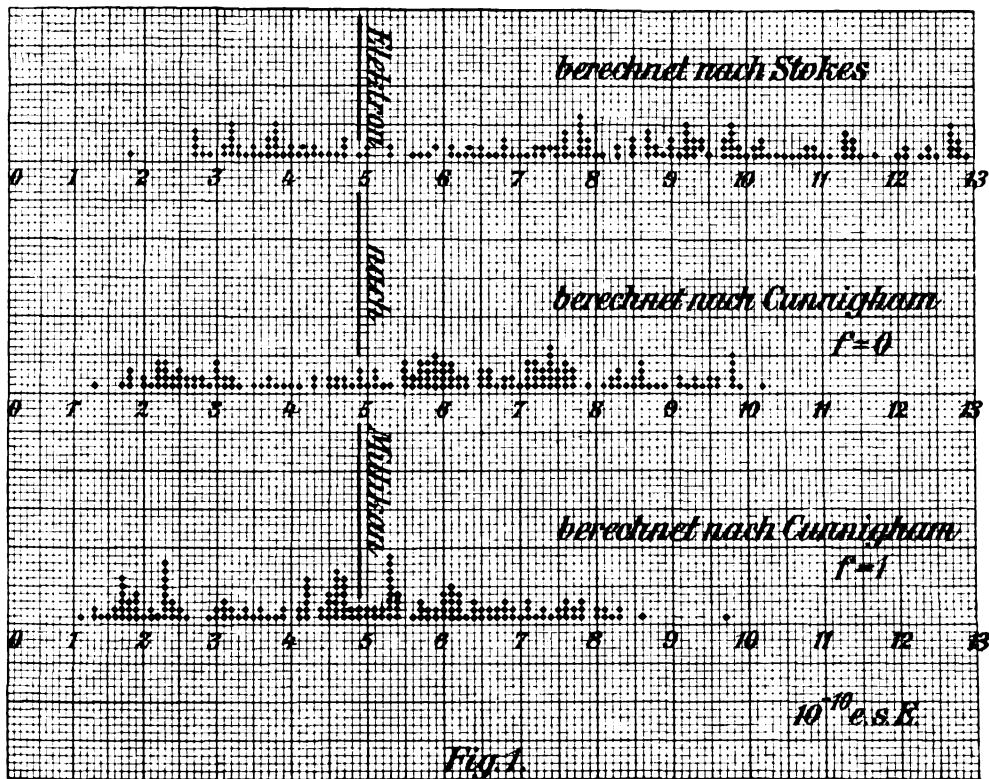 Elektron
berechnet nach Stokes
0 1 2 3 4 5 6 7 8 9 10 11 12 13
nach
berechnet nach Cunnigham
f=0
0 1 2 3 4 5 6 7 8 9 10 11 12 13
Millikan
berechnet nach Cunnigham
f=1
0 1 2 3 4 5 6 7 8 9 10 11 12 13
10⁻¹⁰ e.s.E.
Fig. 1.